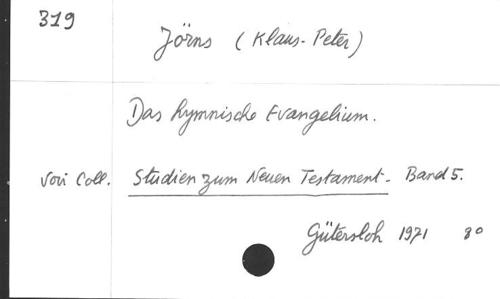 319
Jörns (Klaus-Peter)
Das hymnische Evangelium.
Voir Coll. Studien zum Neuen Testament - Band 5.
Gütersloh 1971 8°